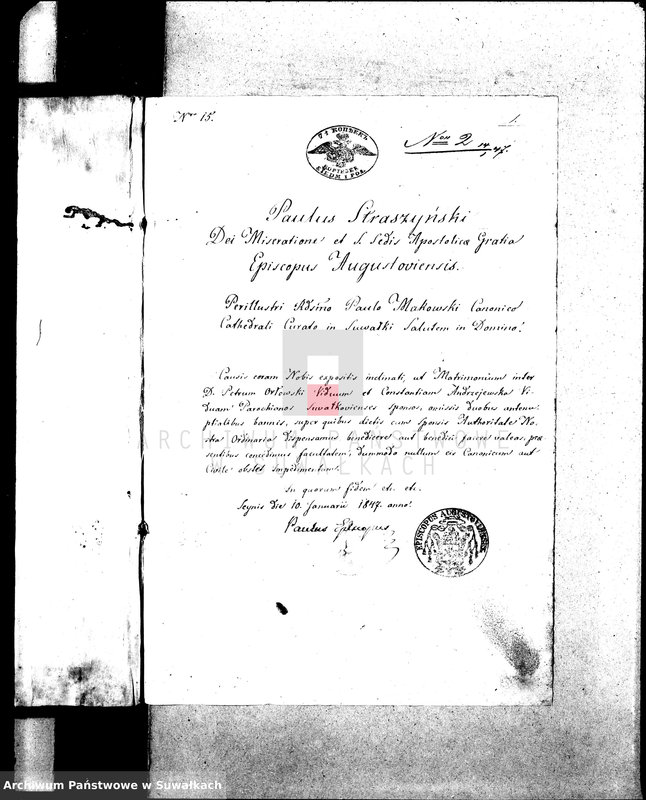 Nro 15.
1.
74 КОПѢЕКЪ
Nou 2 14/1 47.
Paulus Straszyński
Dei Miseratione et S. Sedis Apostolicæ Gratia
Episcopus Augustoviensis.
Perillustri Adsmo Paulo Makowski Canonico
Cathedrali Curato in Suwałki Salutem in Domino!
Causis coram Nobis expositis inclinati, ut Matrimonium inter
D. Petrum Orłowski Viduum et Constantiam Andrzejewska Vi-
duam Parochianos Suwałkovienses sponsos, omissis duobus antenu-
ptialibus bannis, super quibus dictis cum sponsis Authoritate No-
stra Ordinaria dispensamus benedicere aut benedici facere valeas, præ-
sentibus concedimus facultatem, dummodo nullum eis Canonicum aut
Civile obstet impedimentum.
In quorum fidem etc. etc.
Seynis die 10. Januarii 1847. anno.
Paulus Episcopus
EPISCOPUS AUGUSTOVIENSIS
ARCHIWUM PAŃSTWOWE
W SUWAŁKACH
Archiwum Państwowe w Suwałkach